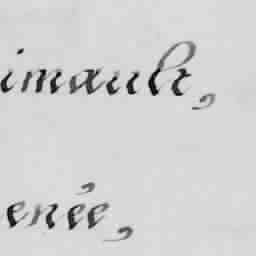 imault,
enée,